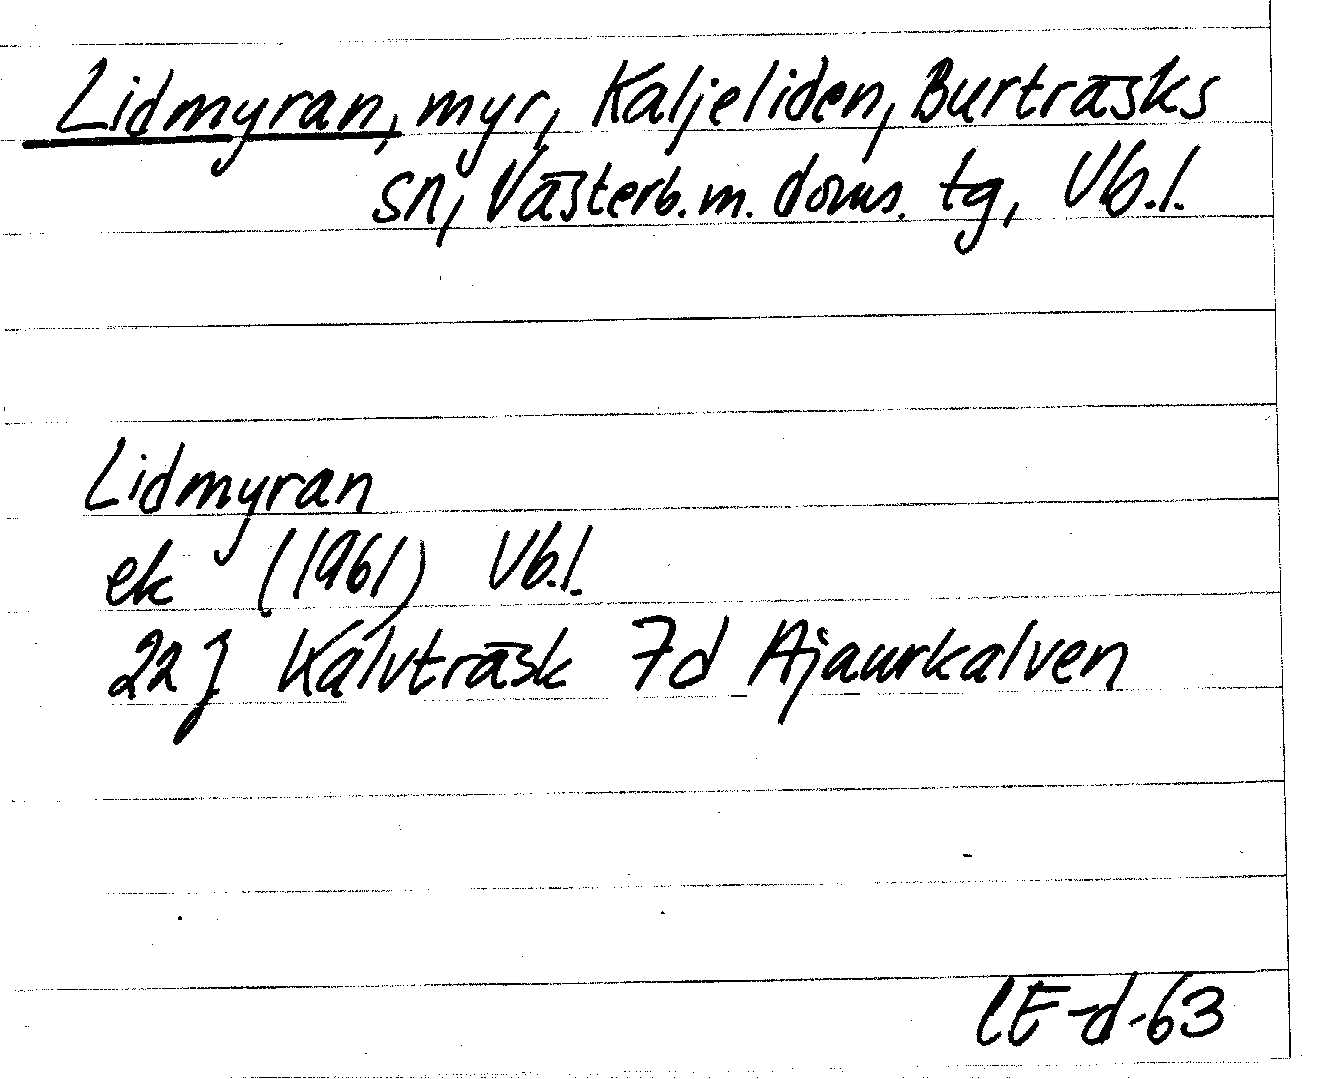 Lidmyran, myr, Kaljeliden, Burträsks
sn, Västerb.m. doms. tg, Vb.l.
Lidmyran
ek (1961) Vb.l.
22J Kalvträsk 7d Ajaurkalven
LE-d-63